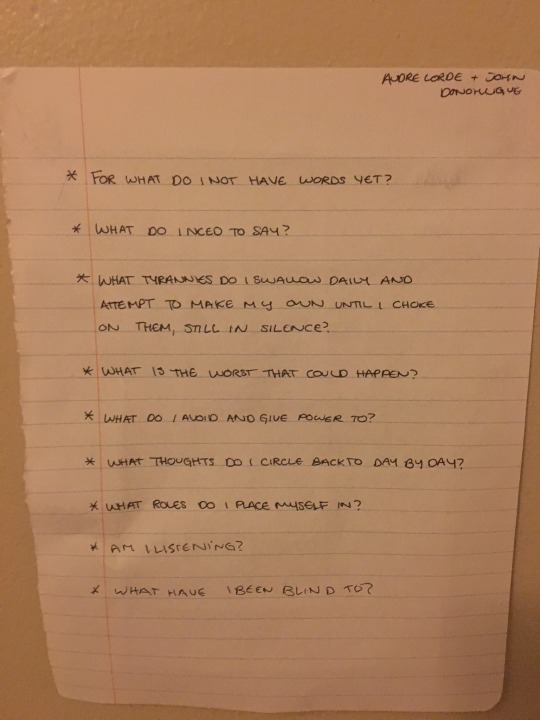 AUDRE LORDE + JOHN
DONOHUGUE
* FOR WHAT DO I NOT HAVE WORDS YET?
* WHAT DO I NEED TO SAY?
* WHAT TYRANNIES DO I SWALLOW DAILY AND
ATTEMPT TO MAKE MY OWN UNTIL I CHOKE
ON THEM, STILL IN SILENCE?
* WHAT IS THE WORST THAT COULD HAPPEN?
* WHAT DO I AVOID AND GIVE POWER TO?
* WHAT THOUGHTS DO I CIRCLE BACK TO DAY BY DAY?
* WHAT ROLES DO I PLACE MYSELF IN?
* AM I LISTENING?
* WHAT HAVE I BEEN BLIND TO?